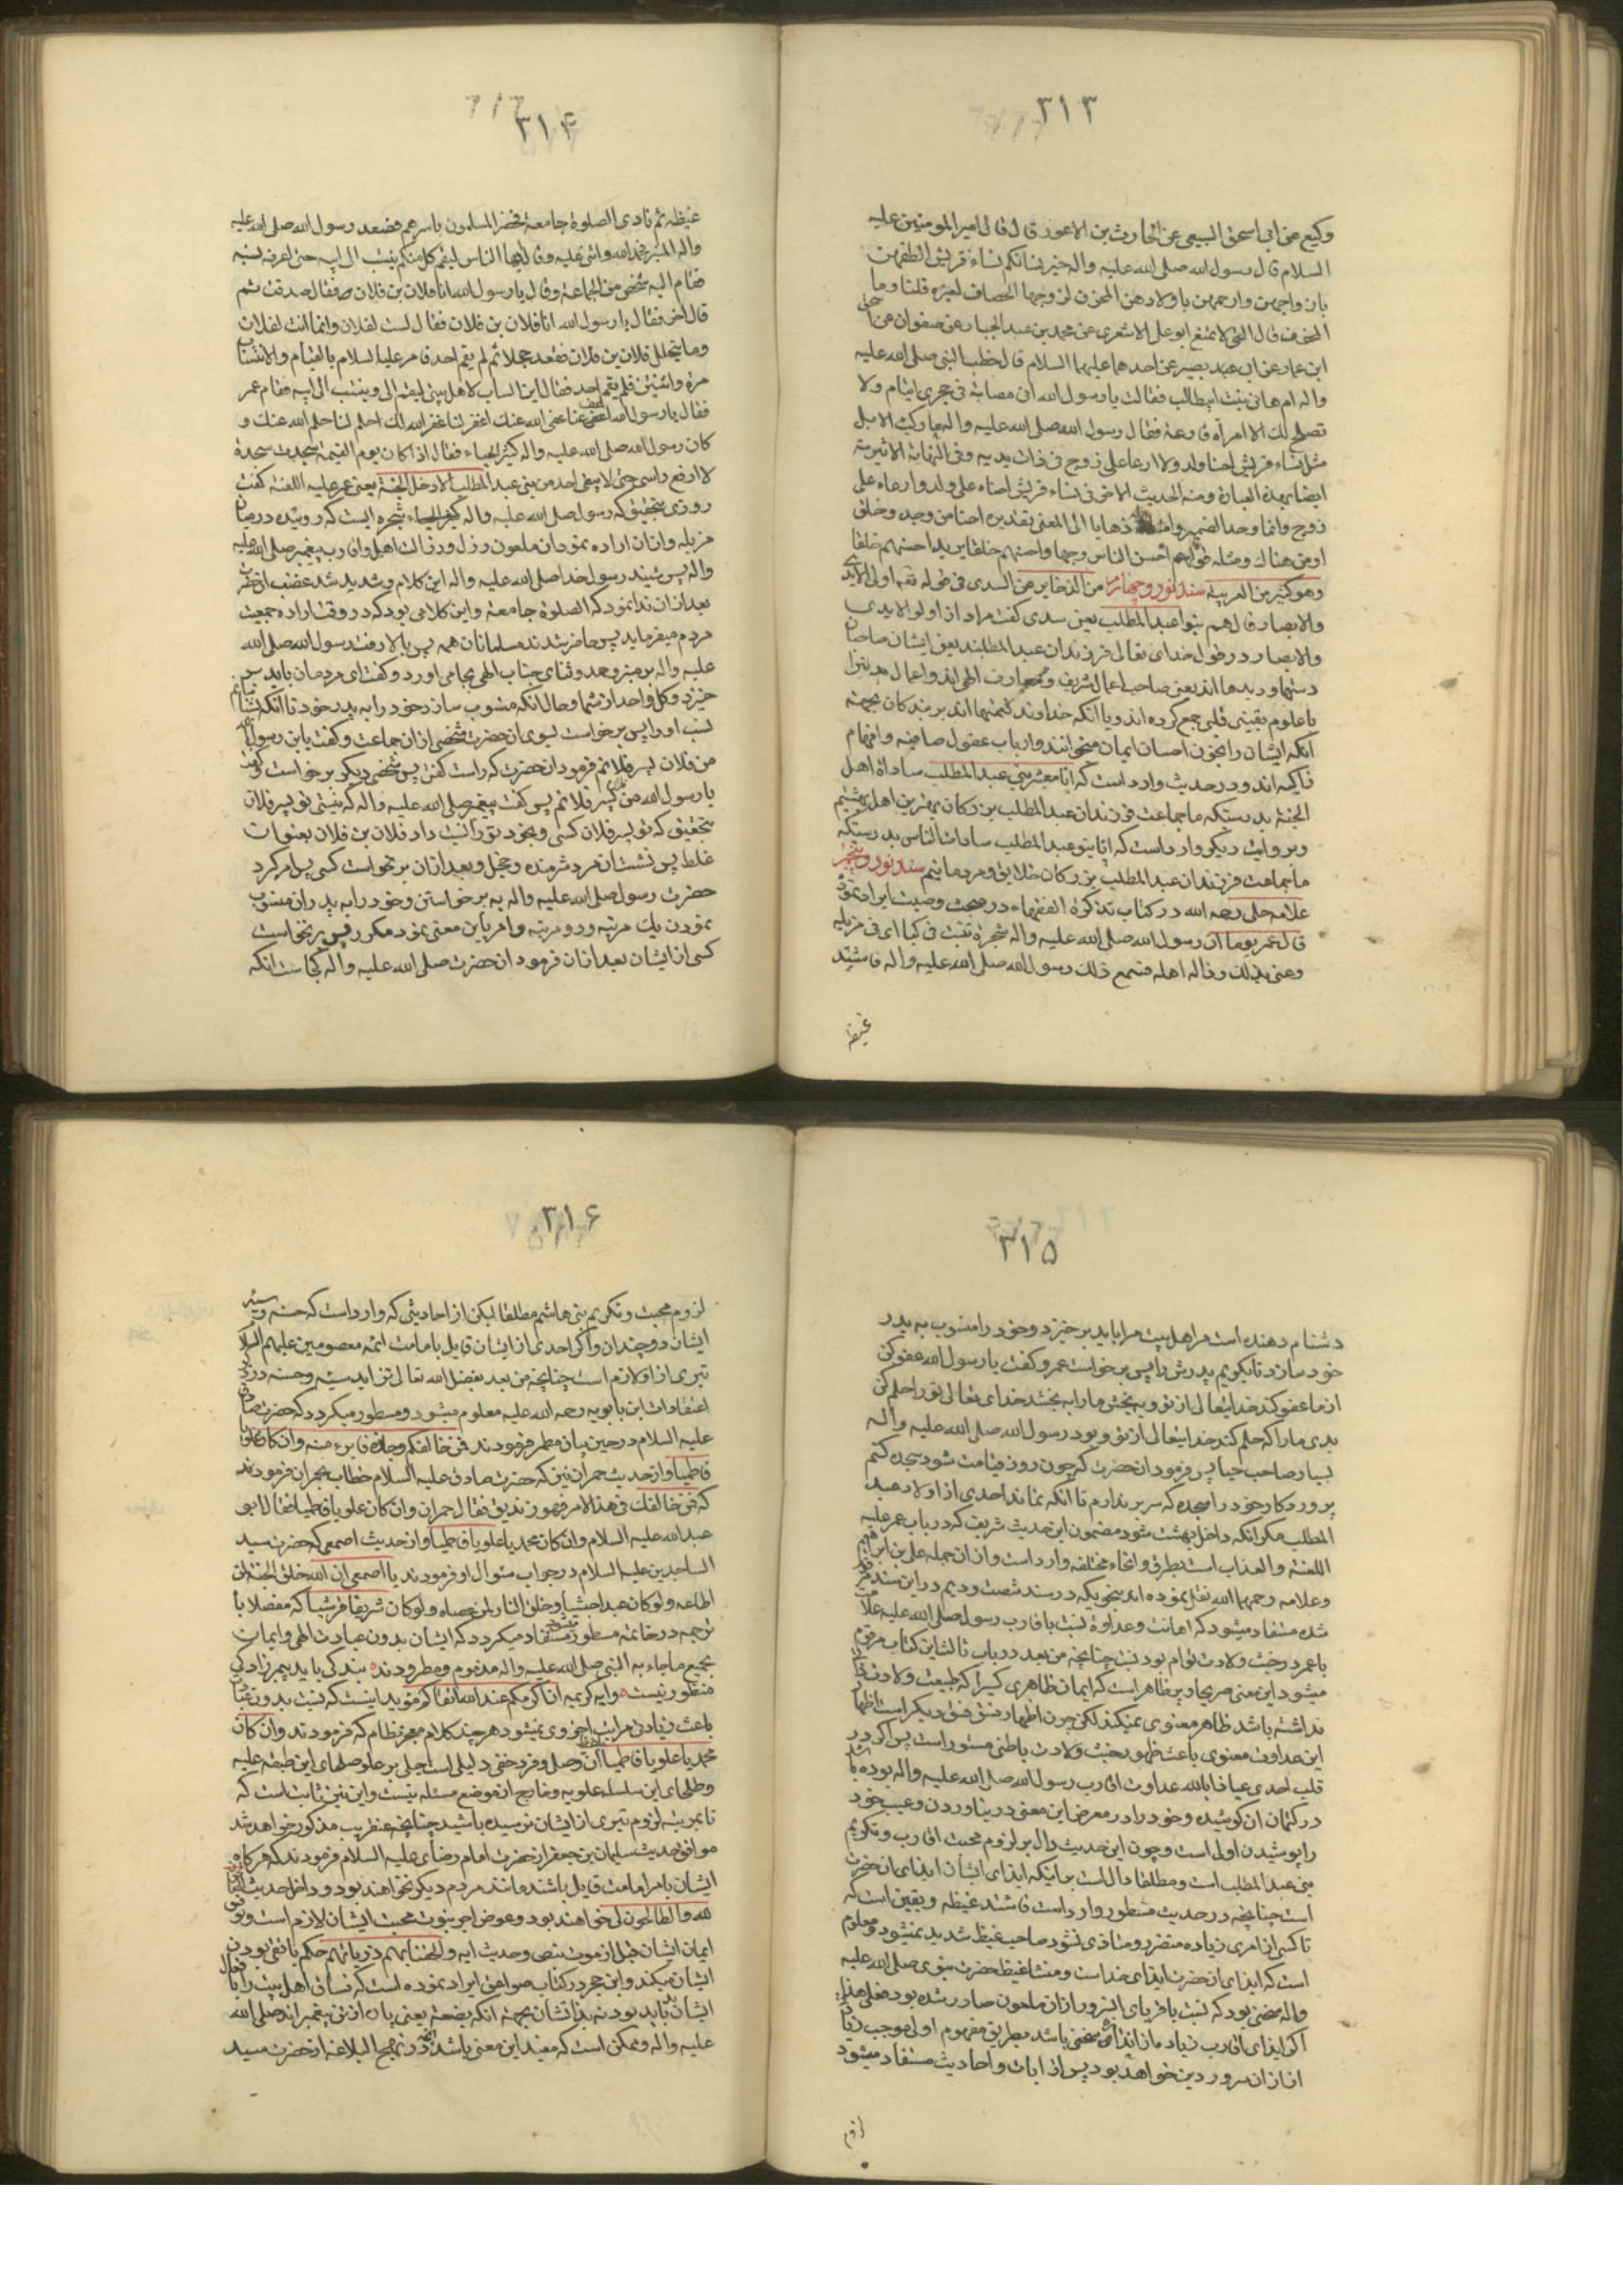 ۳۱۳
وکیع عن ابی اسحق السبیعی عن الحارث بن الاعور قال قال امیر المومنین علیه
السلام قال رسول الله صلی الله علیه واله خیر نسائکم نساء قریش الطفهن
بازواجهن وارحمهن باولادهن المجون لزوجها الحصان لغیره قلنا وما
المجون قال التی لا تمتنع ابو علی الاشعری عن محمد بن عبد الجبار عن صفوان عن اسحق
ابن عمار عن ابی بصیر عن احدهما علیهما السلام قال خطب النبی صلی الله علیه
واله ام هانی بنت ابیطالب فقالت یا رسول الله انی مصابة فی حجری ایتام ولا
تصلح لک الا امرأة فارغة فقال رسول الله صلی الله علیه واله ما رکبت الابل
مثل نساء قریش احنا ولد ولا ارعا علی زوج فی ذات یدیه وفی النهایة الاثیریة
ایضا بهذه العبارة ومنه الحدیث الاخر فی نساء قریش احناه علی ولد وارعاه علی
زوج وانما وحد الضمیر وامثاله ذهابا الی المعنی تقدیره احنا من وجد وخلق
او من هناک ومثله قولهم احسن الناس وجها واحسنهم خلقا یرید احسنهم خلقا
وهو کثیر من العربیة سند نود وچهارم من الذخایر عن السدی فی قوله تعم اولی الایدی
والابصار قال هم بنوا عبد المطلب یعنی سدی گفت مراد از اولو الایدی
والابصار در قول خدای تعالی فرزندان عبد المطلبند یعنی ایشان صاحبان
دستها و دیدها اند یعنی صاحب اعمال شریف و معارف الهی اند و اعمال
با علوم یقینی قلبی جمع کرده اند و یا آنکه خداوند نعمتهااند بر بندکان بجهة
آنکه ایشان را بخوان احسان ایمان میخوانند وارباب عقول صافیه وافهام
ذاکیه اند ودر حدیث وارد است که انا معشر بنی عبد المطلب ساداة اهل
الجنة بدرستیکه ما جماعت فرزندان عبد المطلب بزرکان بهترین اهل بهشتیم
وبروایت دیکر وارد است که انا بنو عبد المطلب سادات الناس بدرستیکه
ما جماعت فرزندان عبد المطلب بزرکان خلایق ومردمانیم سند نود وپنجم
علامه حلی رحمه الله در کتاب تذکرة الفقهاء در مبحث وصیت ایراد نموده
قال عمر یوما ان رسول الله صلی الله علیه واله شجرة نبتت فی کبا ای فی مزبله
وعنی بذلک رذالة اهله فسمع ذلک رسول الله صلی الله علیه واله فاشتد
غیظه
۳۱۴
غیظه ثم نادی الصلوة جامعة فحضر المسلمون باسرهم فصعد رسول الله صلی الله علیه
واله المنبر فحمد الله واثنی علیه وقال ایها الناس لیقم کل منکم ینتسب الی ابیه حتی اعرف نسبه
فقام الیه شخص من الجماعة وقال یا رسول الله انا فلان بن فلان فقال صدقت ثم
قال آخر فقال یا رسول الله انا فلان بن فلان فقال لست لفلان وانما انت لفلان
وما یتحلل فلان بن فلان فقعد خجلا ثم لم یقم احد فامر علیه السلام بالقیام والانتساب
مرة واثنتین فلم یقم احد فقال این الساب لاهل بیتی لیقم الی وینتسب الی ابیه فقام عمر
فقال یا رسول الله اعف عنا عفی الله عنک اغفر لنا غفر الله لک احلم لنا حلم الله عنک و
کان رسول الله صلی الله علیه واله کثیر الحیاء فقال اذا کان یوم القیمة سجدت سجدة
لا ارفع راسی حتی لا یبقی احد من بنی عبد المطلب الا دخل الجنة یعنی عمر علیه اللعنة گفت
روزی بتحقیق که رسول صلی الله علیه واله شجره ایست که روئیده در میان
مزبله و ازان اراده نمود ان ملعون رذل ورذالت اهل واقارب پیغمبر صلی الله علیه
واله پس شنید رسول خدا صلی الله علیه واله این کلام وشدید شد غضب انحضرت
بعد ازان ندا نمود که الصلوة جامعة واین کلامی بود که در وقت اراده جمعیت
مردم میفرماید پس حاضر شدند مسلمانان همه پس بالا رفت رسول الله صلی الله
علیه واله بر منبر وحمد وثنای جناب الهی بجای اورد و گفت ای مردمان باید بر
خیزد وکل واحد از شما وحال انکه منسوب سازد خود را به پدر خود تا آنکه بشناسم
نسب او را پس برخواست بسوی ان حضرت شخصی ازان جماعت وگفت یابن رسول الله
من فلان پسر فلانم فرمود ان حضرت که راست گفتی پس شخصی دیگر برخواست وگفت
یا رسول الله من پسر فلانم پس گفت پیغمبر صلی الله علیه واله که نیستی تو پسر فلان
بتحقیق که تو پسر فلان کسی وبخود تو را نسبت داد فلان بن فلان بعنوان
غلط پس نشست ان مرد شرمنده وخجل وبعد ازان برنخواست کسی پس امر کرد
حضرت رسول صلی الله علیه واله به برخواستن وخود را به پدران منسوب
نمودن یک مرتبه ودو مرتبه وامر باین معنی نمود مکرر پس برنخواست
کسی از ایشان بعد ازان فرمود ان حضرت صلی الله علیه واله کجاست انکه
۳۱۵
دشنام دهنده است مر اهل بیت مرا باید برخیزد وخود را منسوب به پدر
خود سازد تا بگویم پدرش را پس برخواست عمر وگفت یا رسول الله عفو کن
از ما عفو کند خدایتعالی از تو وببخش ما را ببخشد خدای تعالی تو را حلم کن
بدی ما را که حلم کند خدایتعالی از تو وبود رسول الله صلی الله علیه واله
بسیار صاحب حیا پس فرمود ان حضرت که چون روز قیامت شود سجده کنم
پروردکار خود را سجده که سر برندارم تا آنکه نماند احدی از اولاد عبد
المطلب مکر انکه داخل بهشت شود مضمون این حدیث شریف که در باب عمر علیه
اللعنة والعذاب است بطرق وانحاء مختلفه وارد است وازان جمله علی بن ابراهیم
وعلامه رحمهما الله نقل نموده اند بنحویکه در سند شصت ودیم در این سند
شده مستفاد میشود که اهانت وعداوة نسبت باقارب رسول صلی الله علیه علامت
با عمر در خبث ولادت توأم بودنست چنانچه من بعد در باب ثالث این کتاب مرقوم
میشود این معنی صریحا وپر ظاهر است که ایمان ظاهری کسیرا که طیبت ولادت
نداشته باشد ظاهر معنوی نمیکند لکن چون اظهار فسق فسق دیگر است اظهار
این عداوت معنوی باعث ظهور خبث ولادت باطنی مستور است پس اگر در
قلب احدی عیاذا بالله عداوت اقارب رسول الله صلی الله علیه واله بوده باشد
در کتمان ان کوشیده وخود را در معرض این معنی در نیاوردن وعیب خود
را پوشیدن اولی است وچون این حدیث دال بر لزوم محبت اقارب وتکریم
بنی عبد المطلب است ومطلقا دال است بر اینکه ایذای ایشان ایذای ان حضرت
است چنانچه در حدیث مسطور وارد است فاشتد غیظه ویقین است که
تا کسی از امری زیاده متضرر ومتاذی نشود صاحب غیظ شدید نمیشود ومعلوم
است که ایذای ان حضرت ایذای خداست ومنشا غیظ حضرت نبوی صلی الله علیه
واله سخنی بود که نسبت باقربای انسرور ازان ملعون صادر شده بود فعلی هذا
اگر ایذای اقارب زیاده از ایذای سخنی باشد بطریق مفهوم اولی موجب زیاد
ازار ان سرور دین خواهد بود پس از ایات واحادیث مستفاد میشود
لزوم
۳۱۶
لزوم محبت وتکریم بنی هاشم مطلقا لیکن از احادیثی که وارد است که حسنه وسیئه
ایشان دو چندان واگر احدی از ایشان قایل بامامت ائمه معصومین علیهم السلام
تبری از او لازم است چنانچه من بعد بفضل الله تعالی تزاید سیئه وحسنه در
اعتقادات ابن بابویه رحمه الله علیه معلوم میشود ومسطور میکردد که حضرت صادق
علیه السلام در حین بیان مطمر فرمودند فمن خالفکم وجازه فابرءو منه وان کان علویا
فاطمیا واز حدیث حمران نیز که حضرت صادق علیه السلام خطاب بحمران فرمودند
که فمن خالفک فی هذا الامر فهو زندیق فقال حمران وان کان علویا فاطمیا فقال ابو
عبد الله علیه السلام وان کان محمدیا علویا فاطمیا واز حدیث اصمعی که حضرت سید
الساجدین علیه السلام در جواب سئوال او فرمودند یا اصمعی ان الله خلق الجنة لمن
اطاعه ولو کان عبدا حبشیا وخلق النار لمن عصاه ولو کان شریفا قرشیا که مفصلا با
ترجمه در خاتمه مسطور میشود مستفاد میکردد که ایشان بدون عبادت الهی وایمان
بجمیع ما جاء به النبی صلی الله علیه واله مذموم ومطرودند بندگی باید پیمبرزادگی
منظور نیست وآیه کریمه ان اکرمکم عند الله اتقاکم موید اینست که نسبت بدون عبادت
باعث زیادتی مراتب اخروی نمیشود هر چند کلام معجز نظام که فرمودند وان کان
محمدیا علویا فاطمیا ان وصل وفرد خفی دلیلی است جلی بر علو صلهای این طبقه علیه
وطلحای این سلسله علویه وخارج از موضع مسئله نیست واین نیز ثابت است که
تا بمرتبه لزوم تبری از ایشان نرسیده باشید چنانچه عنقریب مذکور خواهد شد
موافق حدیث سلیمان بن جعفر از حضرت امام رضای علیه السلام فرمودند که هرگاه
ایشان بامر امامت قایل باشند مانند مردم دیگر نخواهند بود وداخل حدیث الصالحون
لله والطالحون لی خواهند بود وعوض اجر نبوت محبت ایشان لازم است وتوفی
ایمان ایشان قبل از موت بنص وحدیث ایه والحقنا بهم ذریاتهم حکم باتفی بودن
ایشان میکند وابن حجر در کتاب صواعق ایراد نموده است که فساق اهل بیت را افعال
ایشان بد باید بود نه بذاتشان بجهة آنکه بضعة یعنی پاره از تن پیغمبر اند صلی الله
علیه واله وممکن است که مفید این معنی باشد آنچه در نهج البلاغه از حضرت سید